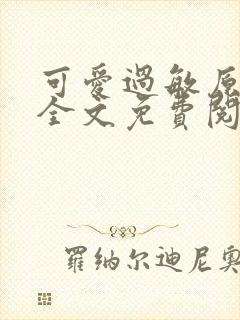 可愛過敏原
全文免費閱
羅納尔迪尼奧